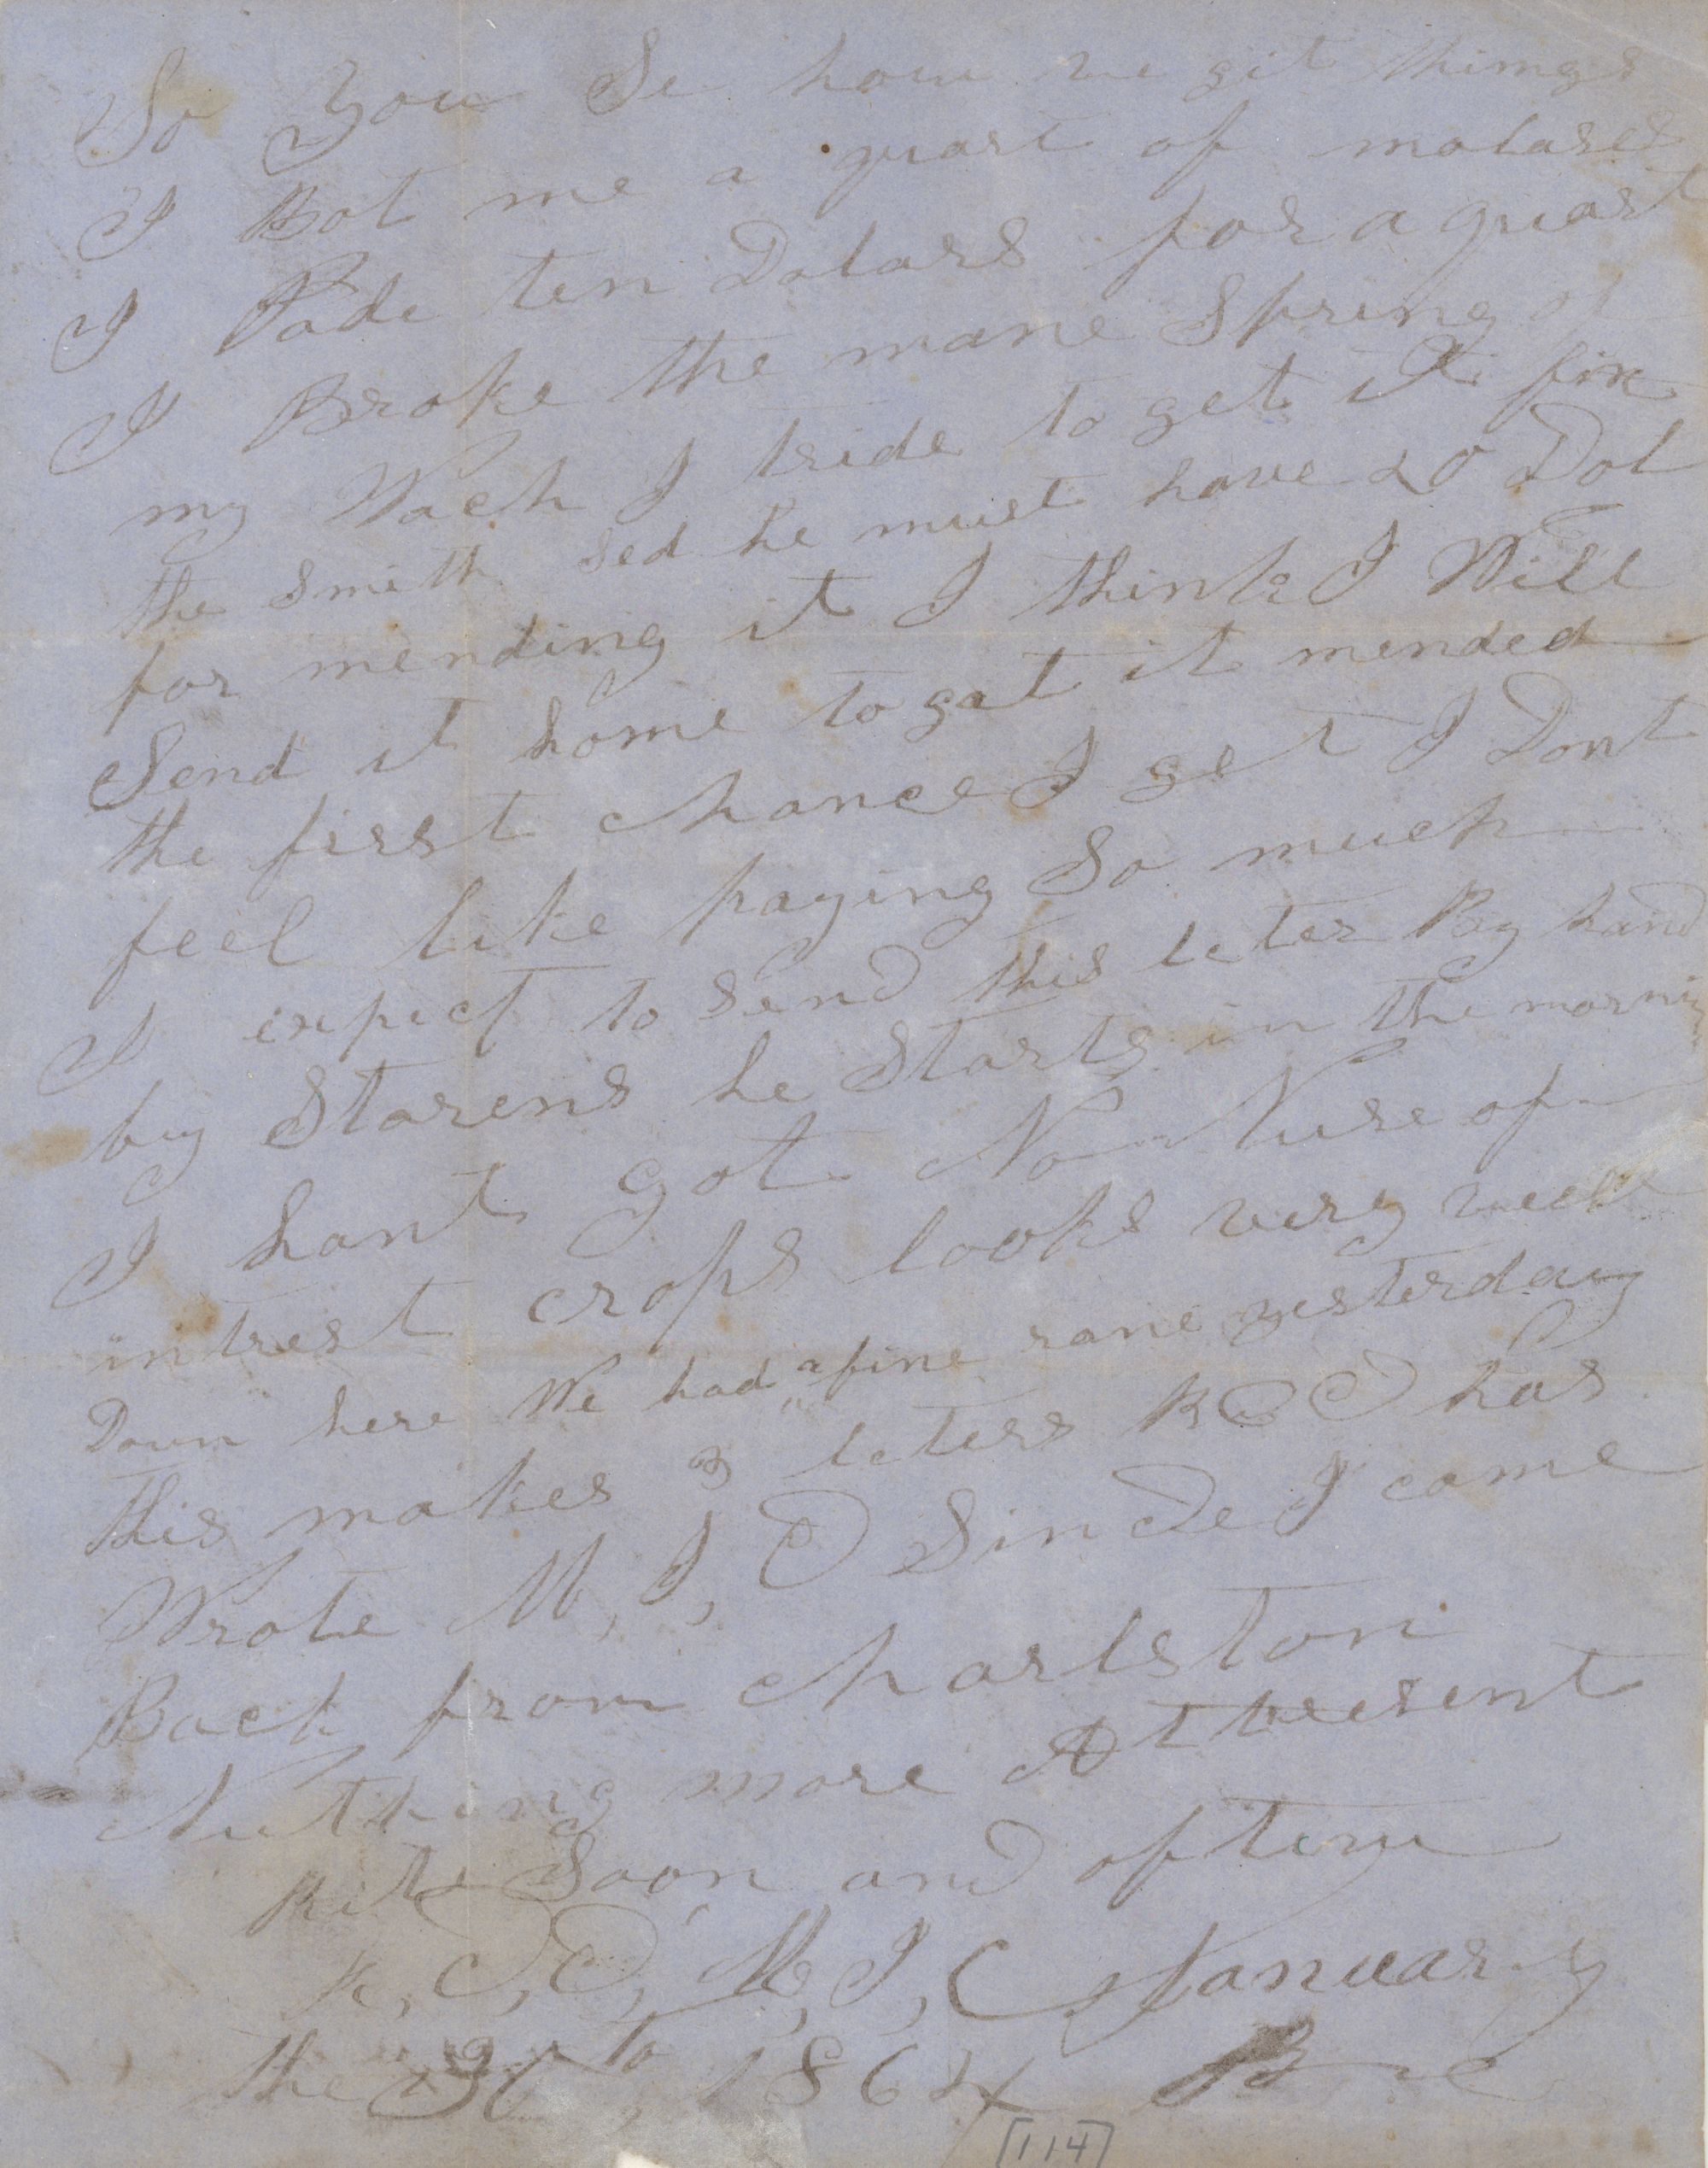 So You Se how we git things
I Bot me a quart of molases
I Pade ten Dolars for a quart
I Broke the mane Spring of
my Wach I tride to get it fix
the Smith sed he must have 20 Dol
for mending it I think I Will
Send it home to gat it mended
the first chance I get I Dont
feel like paying So much
I expect to send this leter By hand
by Starens he Starts in the morni
I hant got No Nuse of
intrest crops looks very well
Down here We had a fine rane yesterday
this makes 3 leters R C D has
Wrote M, J, D Since I came
Back from charlston
Nuthing more At present
Rite Soon and often
to M, J, C January
the 30 1864
[114]